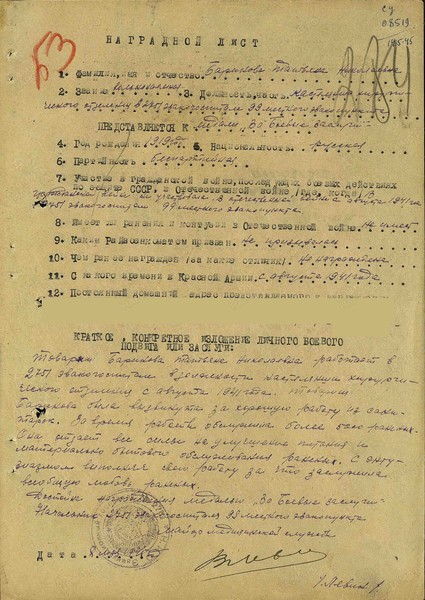 СУ
08519
НАГРАДНОЙ ЛИСТ
1. Фамилия, имя и отчество: Барикова Татьяна Николаевна
2. Звание 3. Должность, часть
2751 эвакогоспиталя 93 местного эвакопункта
ПРЕДСТАВЛЯЕТСЯ К медали „За боевые заслуги“
4. Год рождения 1919 год 5. Национальность русская
6. Партийность беспартийная
7. Участие в гражданской войне, последующих боевых действиях
по защите СССР, в Отечественной войне /где, когда/ В
не участвовала. В отечественной войне с августа 1941 года
в 2751 эвакогоспитале 93 местного эвакопункта
8. Имеет ли ранения и контузии в Отечественной войне Не имеет
9. Каким Райвоенкоматом призван Не призывался
10. Чем ранее награжден /за какие отличия/ Не награждена
11. С какого времени в Красной Армии с августа 1941 года
12. Постоянный домашний адрес
КРАТКОЕ, КОНКРЕТНОЕ ИЗЛОЖЕНИЕ ЛИЧНОГО БОЕВОГО
ПОДВИГА ИЛИ ЗАСЛУГИ:
Товарищ Барикова Татьяна Николаевна работает в
2751 эвакогоспитале в должности кастелянши хирурги-
ческого отделения с августа 1941 года. Товарищ
Барикова была выдвинута за хорошую работу из сани-
тарок. Во время работы обслужила более 6000 раненых.
Она отдает все силы на улучшение питания и
материально бытового обслуживания раненых. С энту-
зиазмом выполняет свою работу за что заслужила
всеобщую любовь раненых.
Достойна награждения медалью „За Боевые заслуги“
Начальник 2751 эвакогоспиталя 93 местного эвакопункта
Майор медицинской службы
Дата
/Левин/